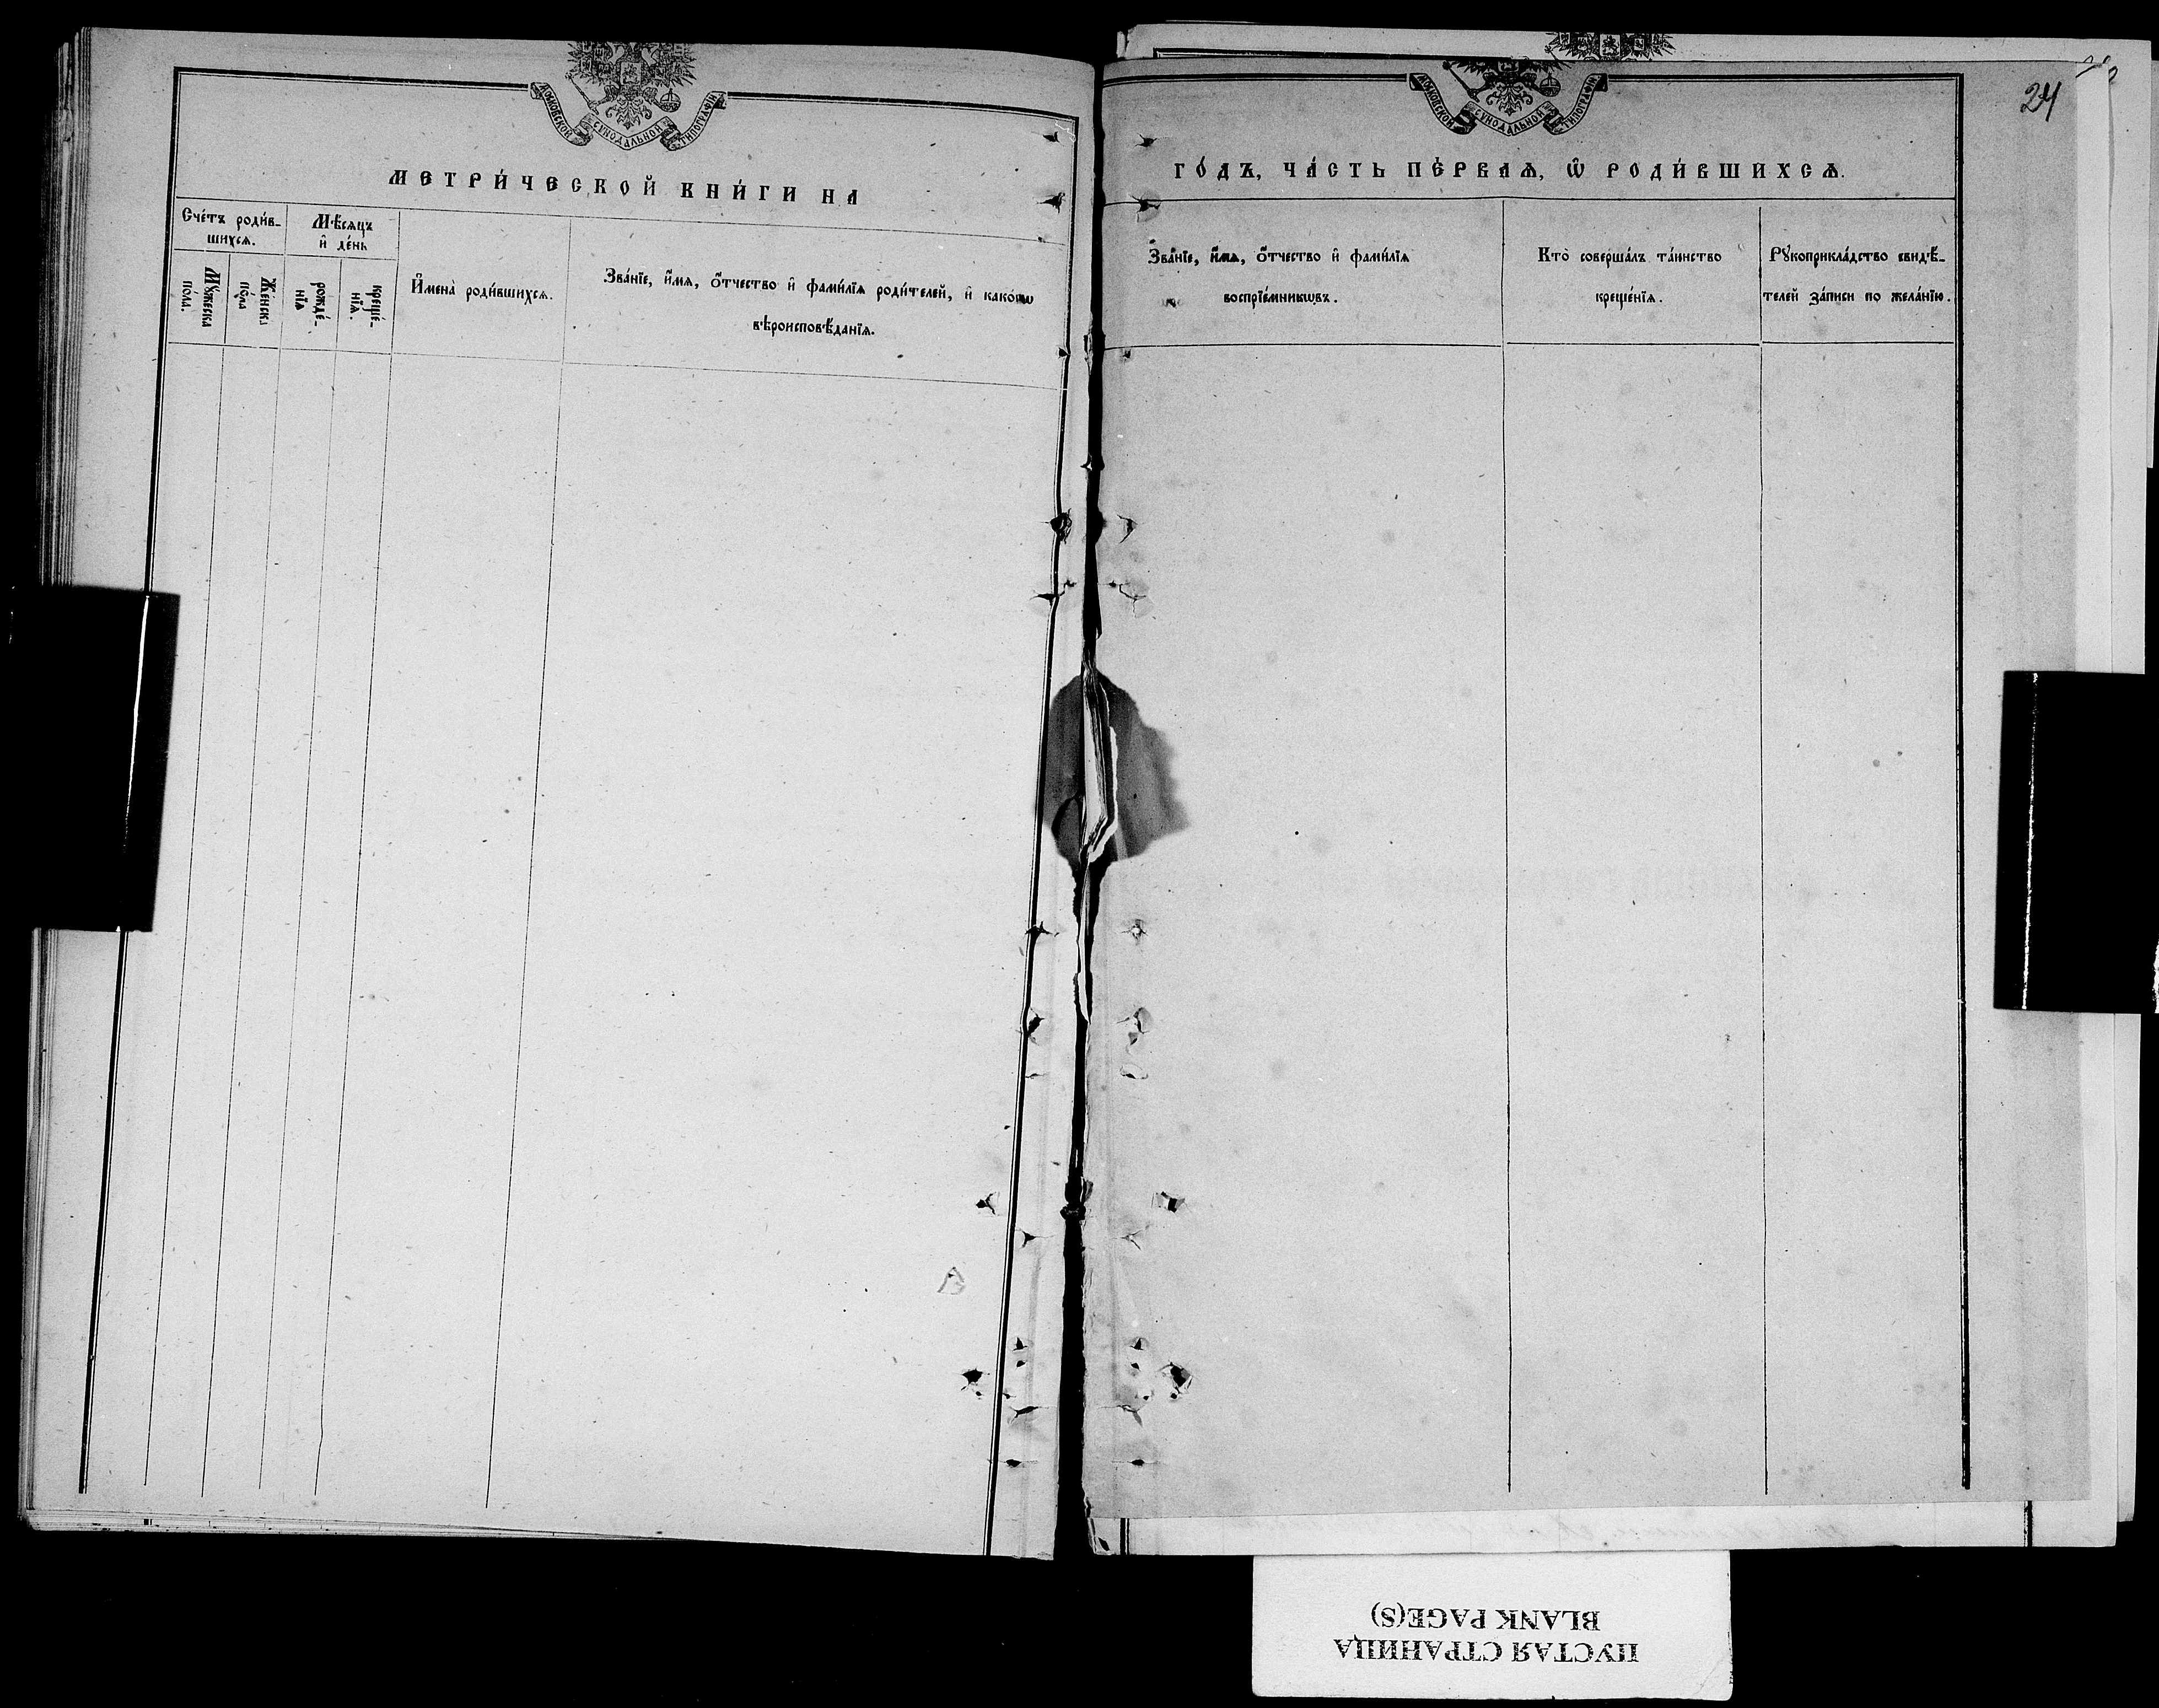 МОСКОВСКОЙ СУНОДАЛЬНОЙ ТИПОГРАФІИ
МЕТРИ́ЧЕСКОЙ КНИ́ГИ НА
Сче́тъ роди́в-
шихсѧ.
Мѣ́сѧцъ
и҆ де́нь
Мꙋ́жеска
пола.
Же́нска
по́ла
рожде́-
нїѧ
креще́-
нїѧ.
И҆мена̀ роди́вшихсѧ.
Зва́нїе, и҆́мѧ, ѻ҆́тчество и҆ фами́лїѧ роди́телей, и҆ како́гѡ
вѣроисповѣ́данїѧ.
МОСКОВСКОЙ СУНОДАЛЬНОЙ ТИПОГРАФІИ
24
ГО́ДЪ, ЧА́СТЬ ПЕ́РВАѦ, Ѡ҆ РОДИ́ВШИХСѦ.
Зва́нїе, и҆́мѧ, ѻ҆́тчество и҆ фами́лїѧ
воспрїе́мникѡвъ.
Кто̀ соверша́лъ та́инство
креще́нїѧ.
Рꙋкоприкла́дство свидѣ́-
телей за́писи по жела́нїю.
ПУСТАЯ СТРАНИЦА
BLANK PAGE(S)